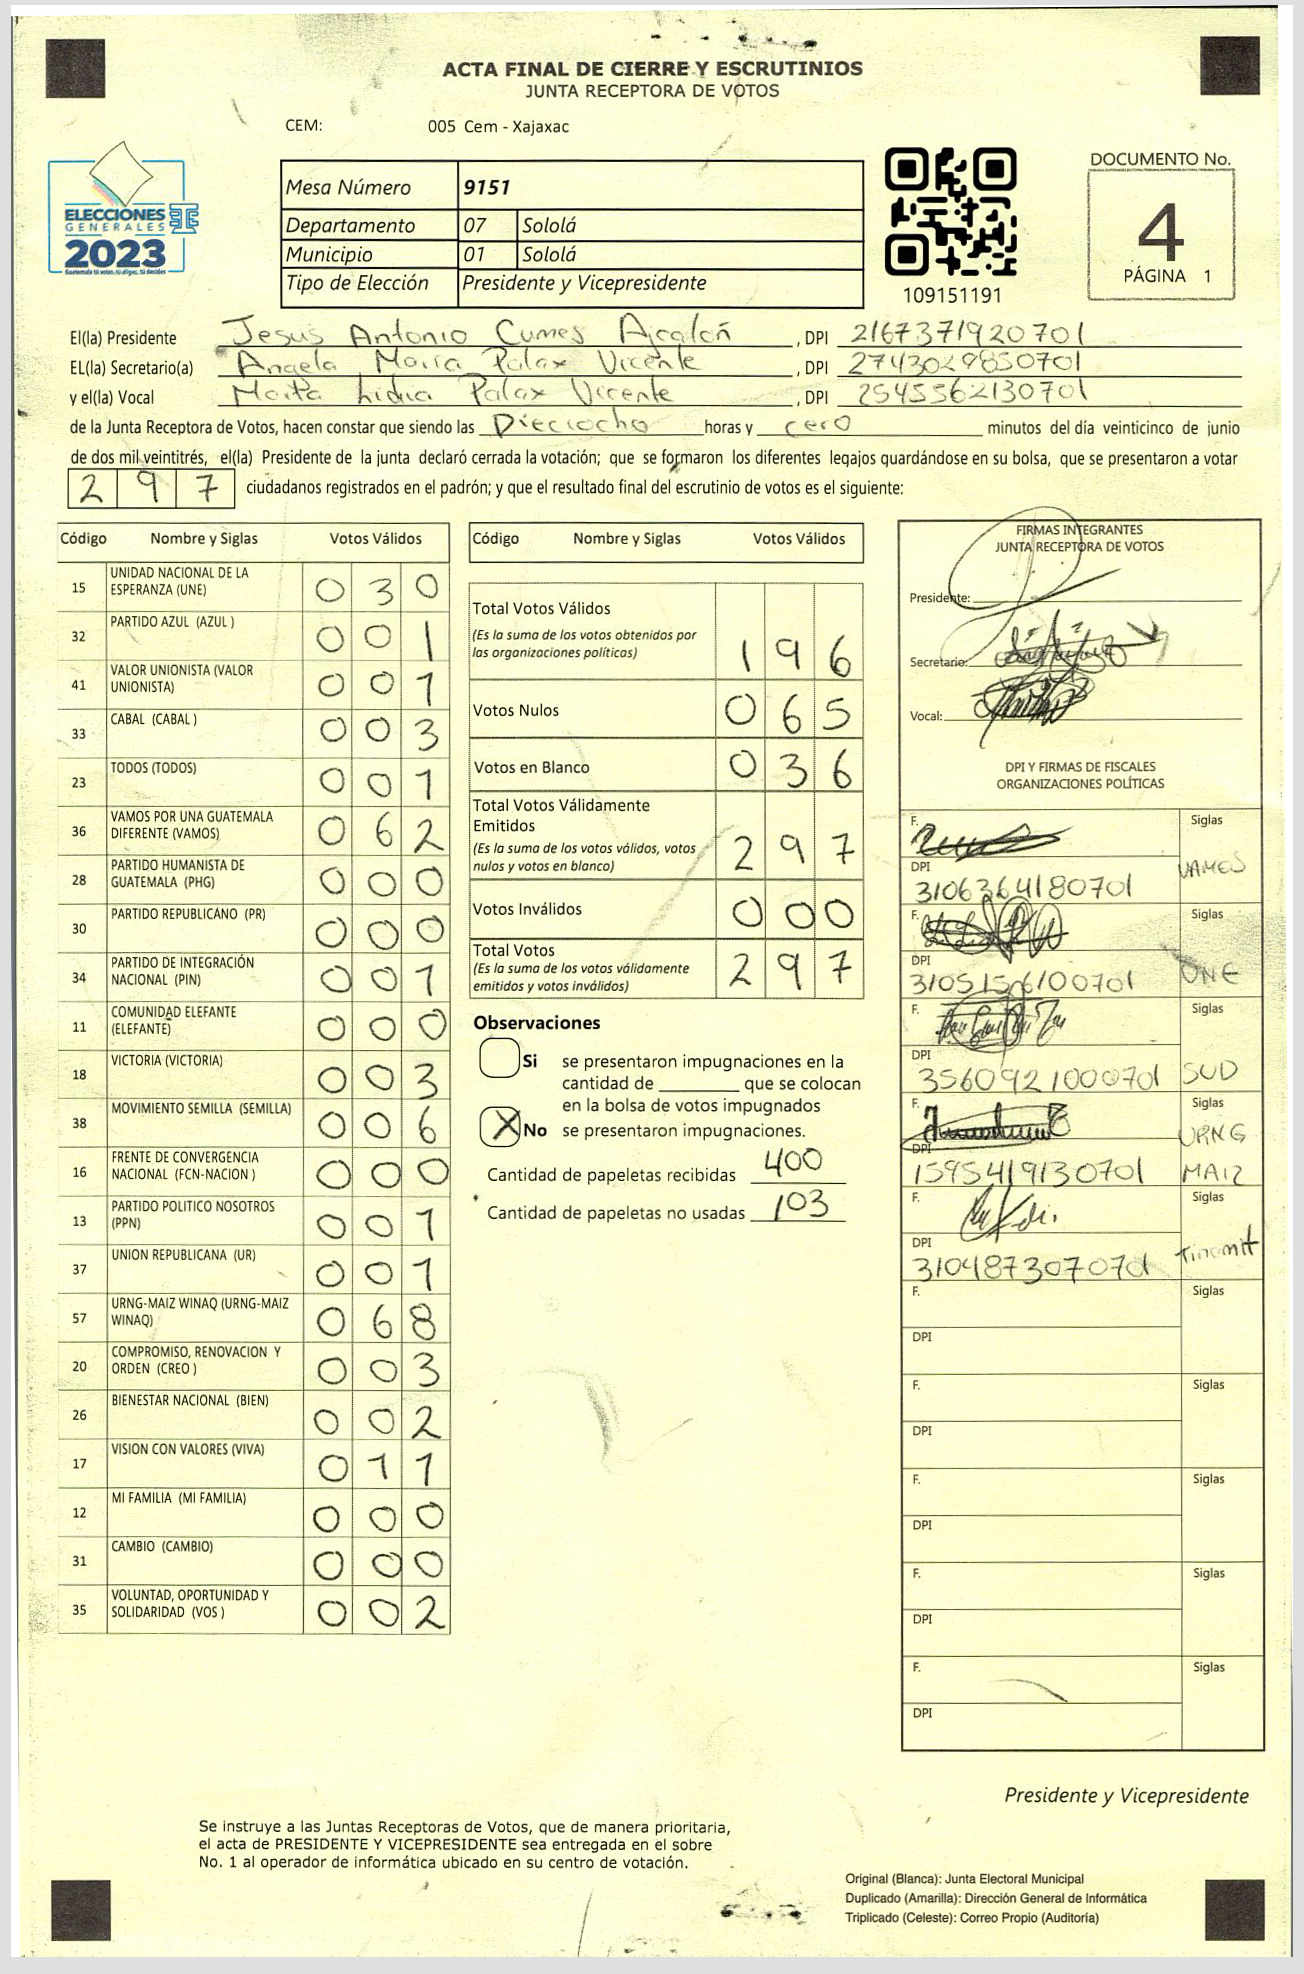 ACTA FINAL DE CIERRE Y ESCRUTINIOS
JUNTA RECEPTORA DE VOTOS
CEM: 005 Cem - Xajaxac
ELECCIONES
GENERALES
2023
Guatemala tú votas, tú eliges, tú decides
Mesa Número 9151
Departamento 07 Sololá
Municipio 01 Sololá
Tipo de Elección Presidente y Vicepresidente
109151191
DOCUMENTO No.
4
PÁGINA 1
El(la) Presidente Jesus Antonio Cumes Ajcalón, DPI 2167371920701
EL(la) Secretario(a) Angela María Palax Vicente, DPI 2743029850701
y el(la) Vocal Marta Lidia Palax Vicente, DPI 2545562130701
de la Junta Receptora de Votos, hacen constar que siendo las Dieciocho horas y cero minutos del día veinticinco de junio
de dos mil veintitrés, el(la) Presidente de la junta declaró cerrada la votación; que se formaron los diferentes legajos guardándose en su bolsa, que se presentaron a votar
297 ciudadanos registrados en el padrón; y que el resultado final del escrutinio de votos es el siguiente:
Código Nombre y Siglas Votos Válidos
15 UNIDAD NACIONAL DE LA ESPERANZA (UNE) 030
32 PARTIDO AZUL (AZUL ) 001
41 VALOR UNIONISTA (VALOR UNIONISTA) 001
33 CABAL (CABAL ) 003
23 TODOS (TODOS) 001
36 VAMOS POR UNA GUATEMALA DIFERENTE (VAMOS) 062
28 PARTIDO HUMANISTA DE GUATEMALA (PHG) 000
30 PARTIDO REPUBLICANO (PR) 000
34 PARTIDO DE INTEGRACIÓN NACIONAL (PIN) 001
11 COMUNIDAD ELEFANTE (ELEFANTE) 000
18 VICTORIA (VICTORIA) 003
38 MOVIMIENTO SEMILLA (SEMILLA) 006
16 FRENTE DE CONVERGENCIA NACIONAL (FCN-NACION ) 000
13 PARTIDO POLITICO NOSOTROS (PPN) 001
37 UNION REPUBLICANA (UR) 001
57 URNG-MAIZ WINAQ (URNG-MAIZ WINAQ) 068
20 COMPROMISO, RENOVACION Y ORDEN (CREO ) 003
26 BIENESTAR NACIONAL (BIEN) 002
17 VISION CON VALORES (VIVA) 011
12 MI FAMILIA (MI FAMILIA) 000
31 CAMBIO (CAMBIO) 000
35 VOLUNTAD, OPORTUNIDAD Y SOLIDARIDAD (VOS ) 002
Código Nombre y Siglas Votos Válidos
Total Votos Válidos 196
(Es la suma de los votos obtenidos por
las organizaciones políticas)
Votos Nulos 065
Votos en Blanco 036
Total Votos Válidamente
Emitidos 297
(Es la suma de los votos válidos, votos
nulos y votos en blanco)
Votos Inválidos 000
Total Votos 297
(Es la suma de los votos válidamente
emitidos y votos inválidos)
Observaciones
Si se presentaron impugnaciones en la
cantidad de ________ que se colocan
en la bolsa de votos impugnados
X No se presentaron impugnaciones.
Cantidad de papeletas recibidas 400
Cantidad de papeletas no usadas 103
FIRMAS INTEGRANTES
JUNTA RECEPTORA DE VOTOS
Presidente:
Secretario:
Vocal:
DPI Y FIRMAS DE FISCALES
ORGANIZACIONES POLÍTICAS
F. Siglas
DPI VAMOS
3106364180701
F. Siglas
DPI UNE
3105156100701
F. Siglas
DPI
3560921000701 SUD
F. Siglas
DPI URNG
1595419130701 MAIZ
F. Siglas
DPI Tinamit
3104873070701
F. Siglas
DPI
F. Siglas
DPI
F. Siglas
DPI
F. Siglas
DPI
F. Siglas
DPI
Presidente y Vicepresidente
Se instruye a las Juntas Receptoras de Votos, que de manera prioritaria,
el acta de PRESIDENTE Y VICEPRESIDENTE sea entregada en el sobre
No. 1 al operador de informática ubicado en su centro de votación.
Original (Blanca): Junta Electoral Municipal
Duplicado (Amarilla): Dirección General de Informática
Triplicado (Celeste): Correo Propio (Auditoría)